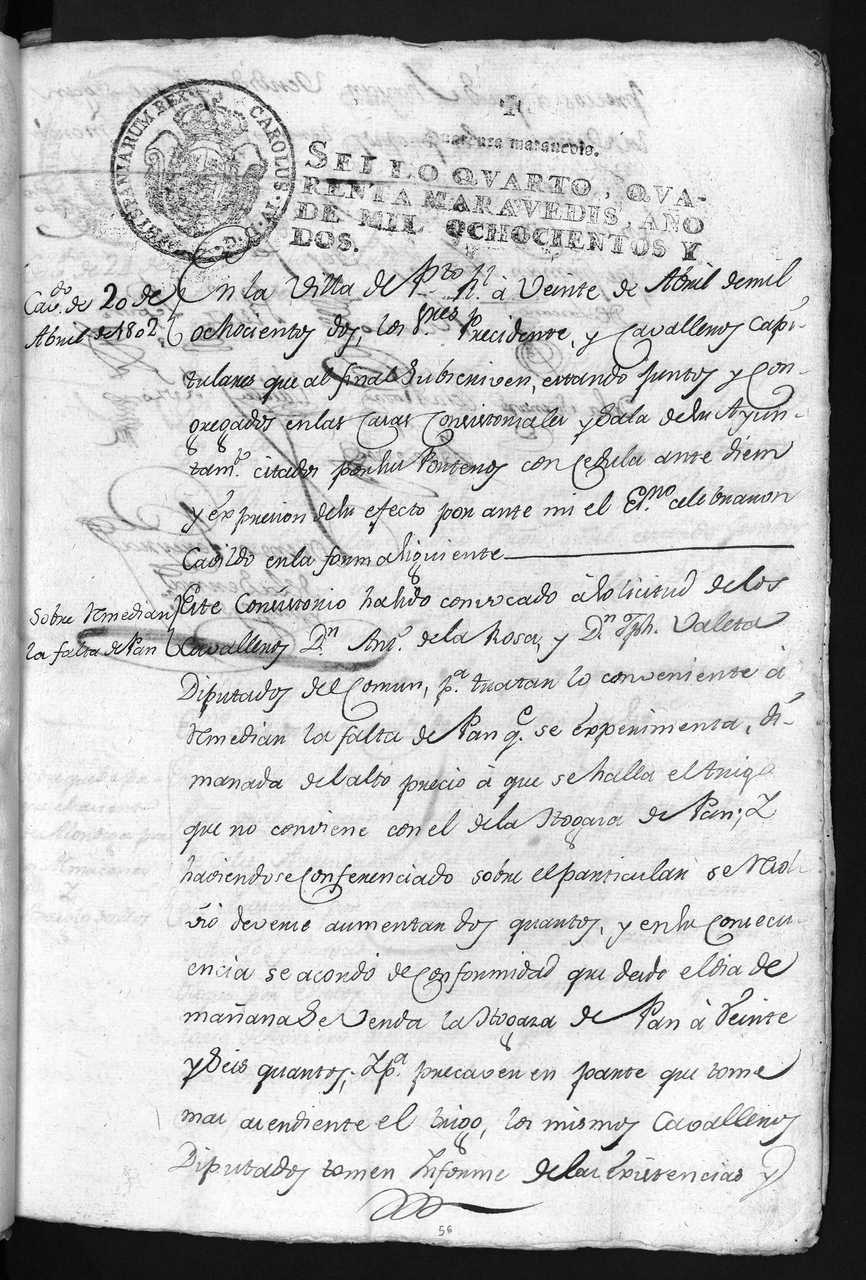 CAROLUS · IV · D · G · HISPANIARUM REX
Quarenta maravedis.
SELLO QVARTO, QVA-
RENTA MARAVEDIS, AÑO
DE MIL OCHOCIENTOS Y
DOS.
Cavdo. de 20 de
Abril de 1802
En la Villa de Pto. Rl. à Veinte de Abril de mil
ochocientos dos, los Sres. Precidente, y Cavalleros Capi-
tulares que al final Subscriven, estando juntos y con-
gregados en las Casas Consistoriales y Sala de su Ayun-
tamto. citados por sus Porteros con Cedula ante diem
y exprecion de su efecto por ante mi el Esno. celebraron
Cavildo en la forma siguiente
Sobre remediar
la falta de Pan
Este Consistorio ha sido convocado à solicitud de los
Cavalleros Dn. Anto. de la Rosa, y Dn. Jph. Valeta
Diputados del Comun, pa. tratar lo conveniente à
remediar la falta de Pan qe. se experimenta, di-
manada del alto precio à que se halla el trigo
que no conviene con el de la Hogaza de Pan; Y
haviendose Conferenciado sobre el particular se Reco-
vio deverse aumentar dos quartos, y en su Consecu-
encia se acordó de Conformidad que desde el dia de
mañana Se Venda la Hogaza de Pan à Veinte
y Seis quartos; Y pa. precaver en parte que tome
mas acendiente el trigo, los mismos Cavalleros
Diputados tomen Informe de las Existencias y
56